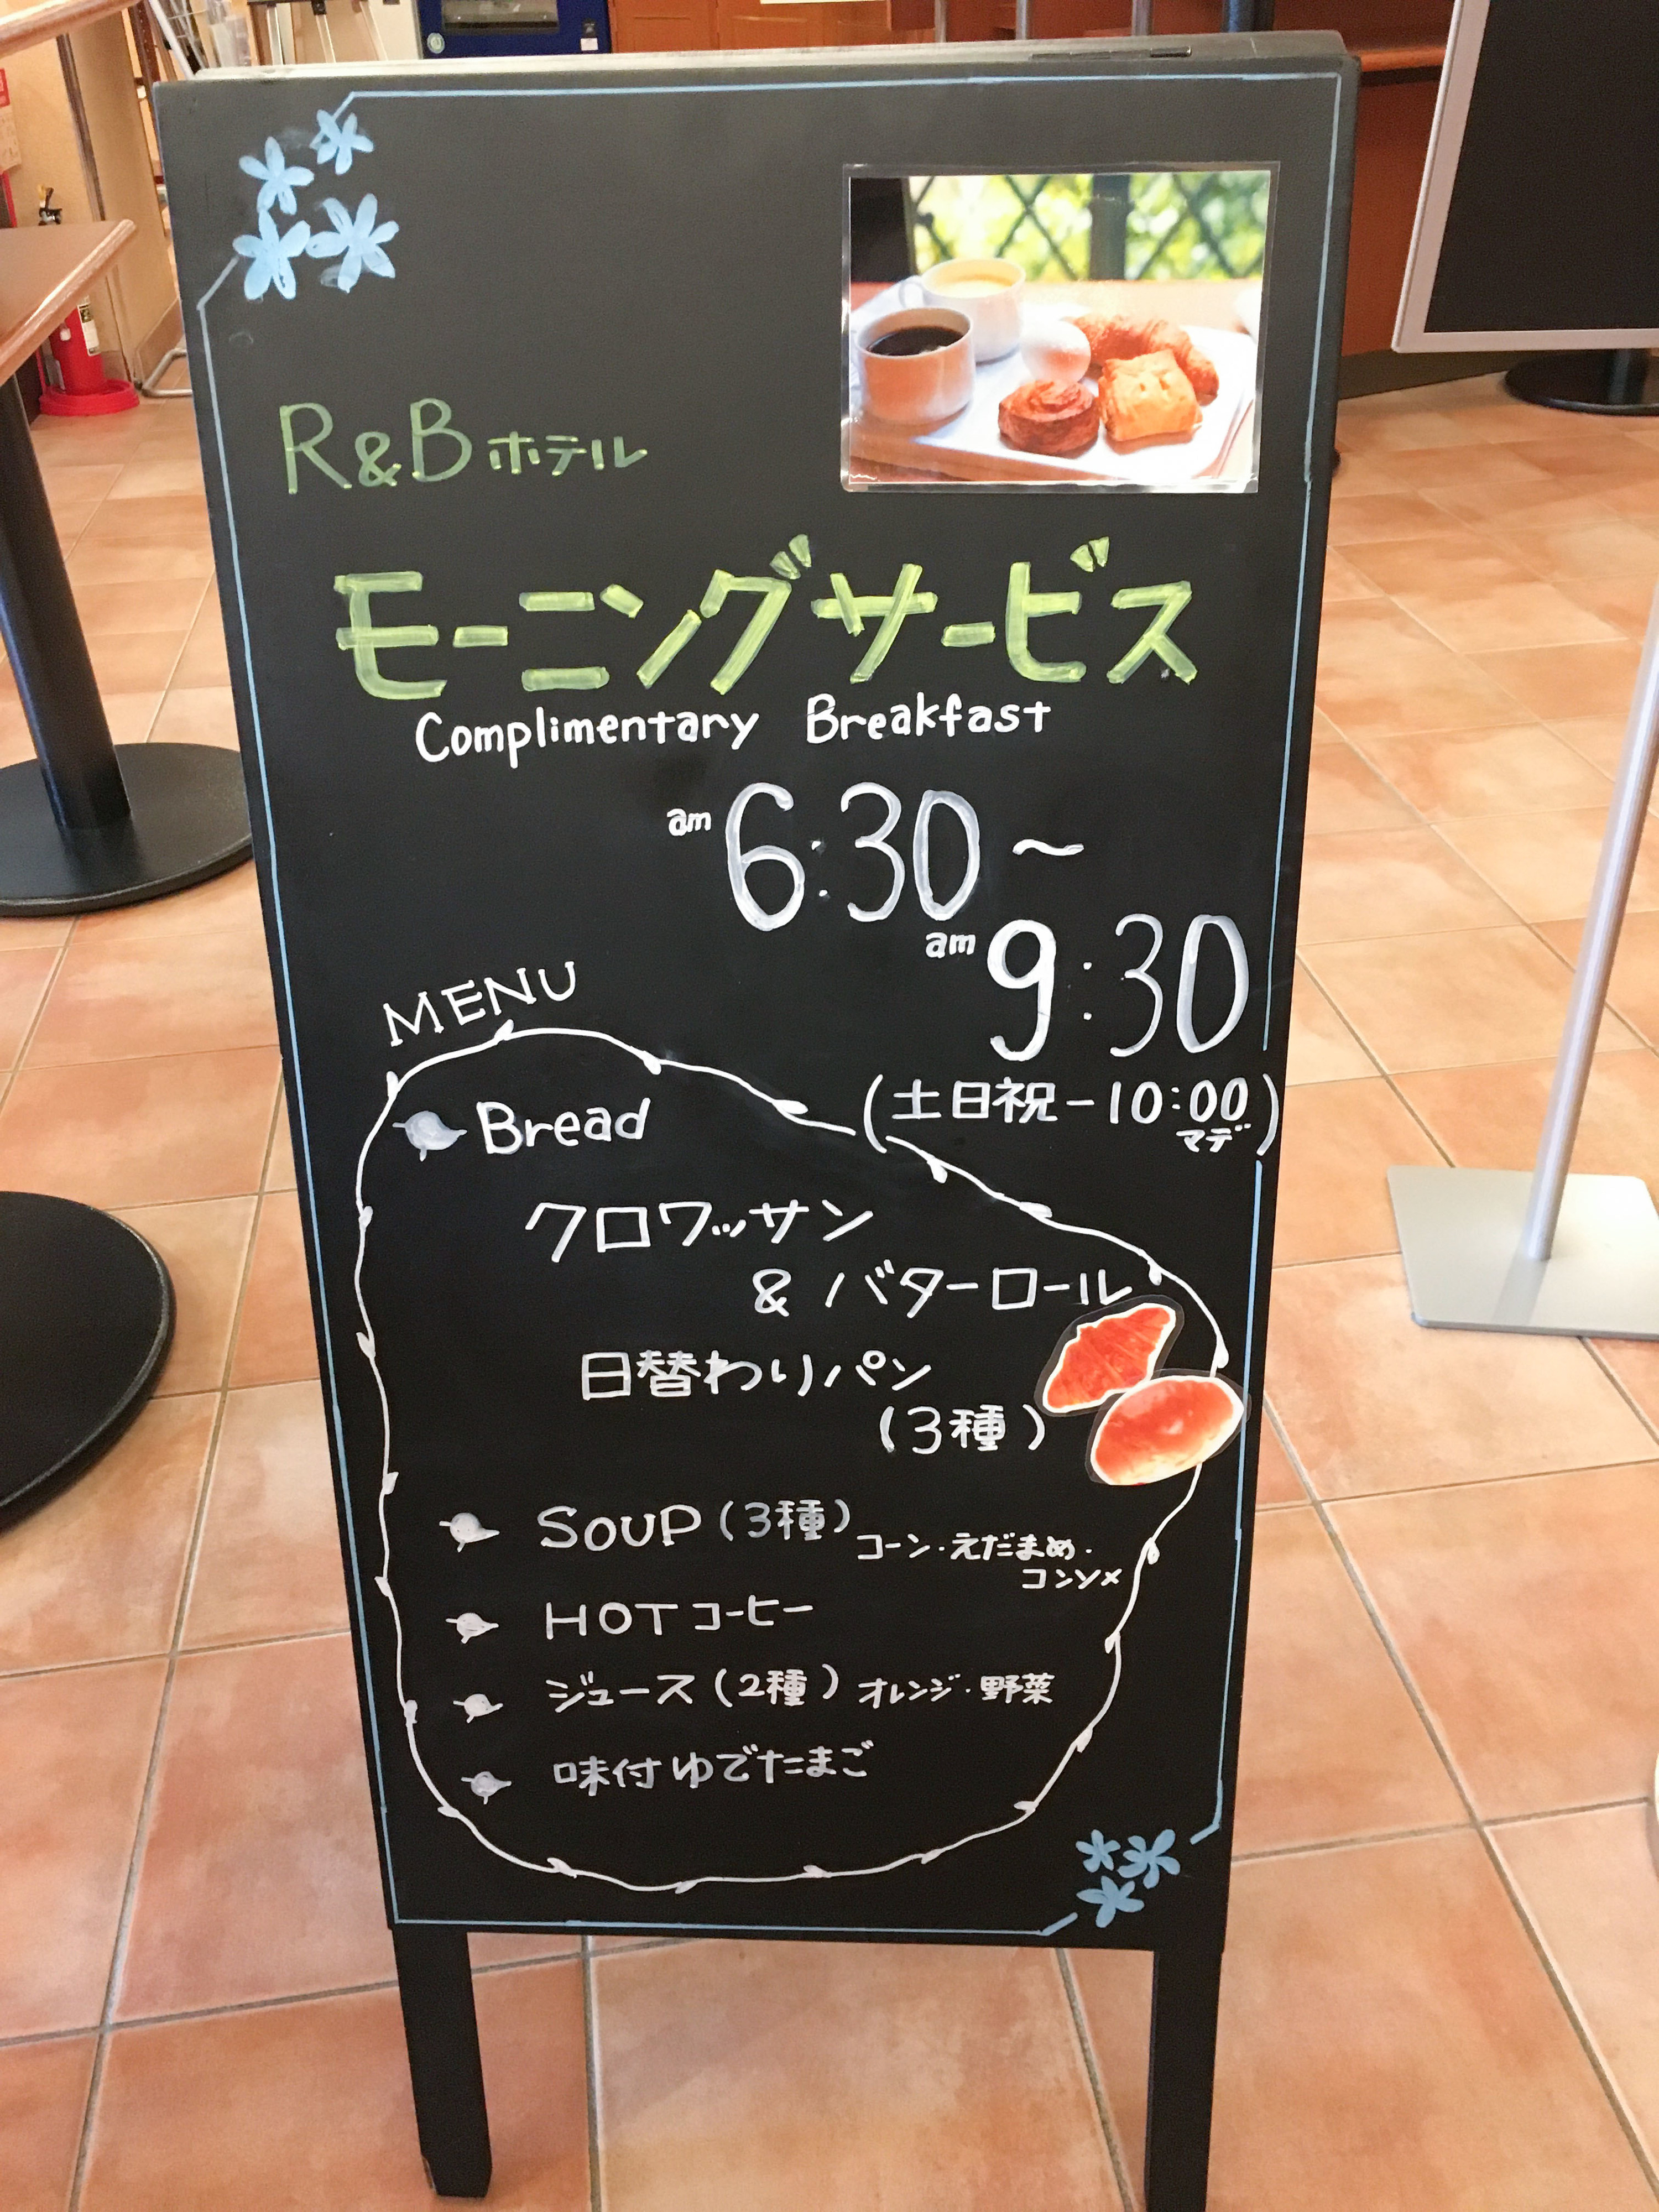 R&Bホテル
モーニングサービス
Complimentary Breakfast
am 6:30～
am 9:30
(土日祝-10:00
マデ)
MENU
Bread
クロワッサン
& バターロール
日替わりパン
(3種)
SOUP (3種) コーン・えだまめ・
コンソメ
HOTコーヒー
ジュース (2種) オレンジ・野菜
味付ゆでたまご